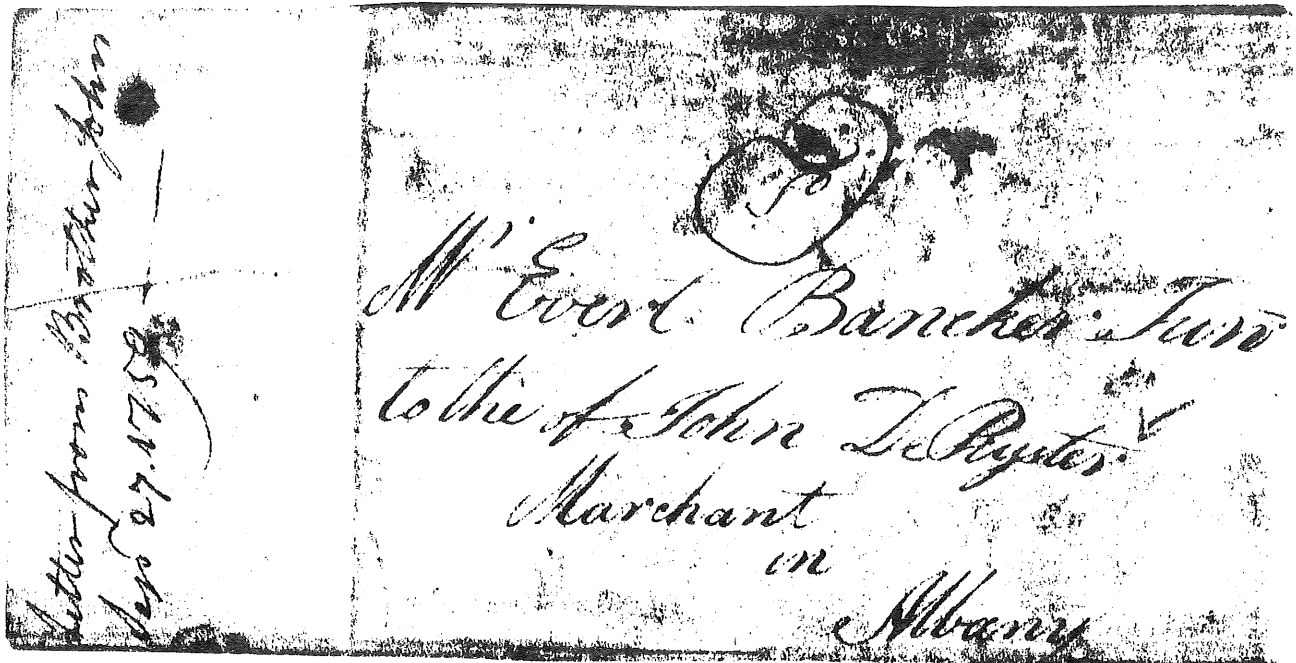 Letter from Brother
Sep 27. 1752
Mr Evert Bancker Junr
to the of John De Pyster
Marchant
in
Albany